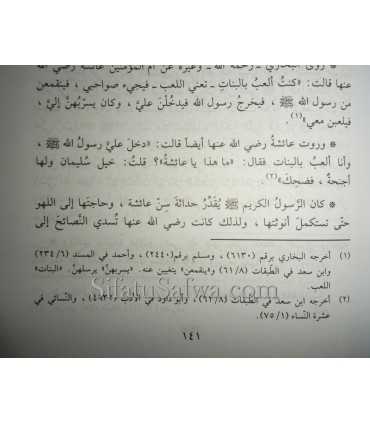 * روى البخاري ـ رحمه الله ـ وغيره عن أم المؤمنين عائشة رضي الله
عنها قالت: «كنتُ ألعبُ بالبناتِ ـ تعني اللعب ـ فيجيء صواحبي، فينقمعن
من رسول الله ﷺ، فيخرجُ رسول الله فيدخُلْنَ عليَّ، وكان يسرِّبهُنَّ إليَّ،
فيلعبن معي»(١).
* وروت عائشةُ رضي الله عنها أيضاً قالت: «دخلَ عليَّ رسولُ الله ﷺ،
وأنا ألعبُ بالبنات فقال: «ما هذا يا عائشةُ»؟ قلتُ: خيل سُليمان ولها
أجنحةٌ، فضحِكَ»(٢).
* كان الرَّسولُ الكريم ﷺ يُقدِّرُ حداثةَ سِنّ عائشة، وحاجتَها إلى اللهو
حتّى تستكملَ أنوثتها، ولذلك كانت رضي الله عنها تُسدي النَّصائحَ إلى
(١) أخرجه البخاري برقم (٦١٣٠)، ومسلم برقم (٢٤٤٠)، وأحمد في المسند (٢٣٤/٦)
وابن سعد في الطبقات (٦١/٨) و«ينقمعن» يتغيبن عنه. «يسربهنَّ» يرسلهنَّ. «البنات»
اللعب.
(٢) أخرجه ابن سعد في الطبقات (٦٢/٨)، وأبو داود في الأدب، والنَّسائي في
عشرة النِّساء (٧٥/١).
SifatuSafwa.com
١٤١